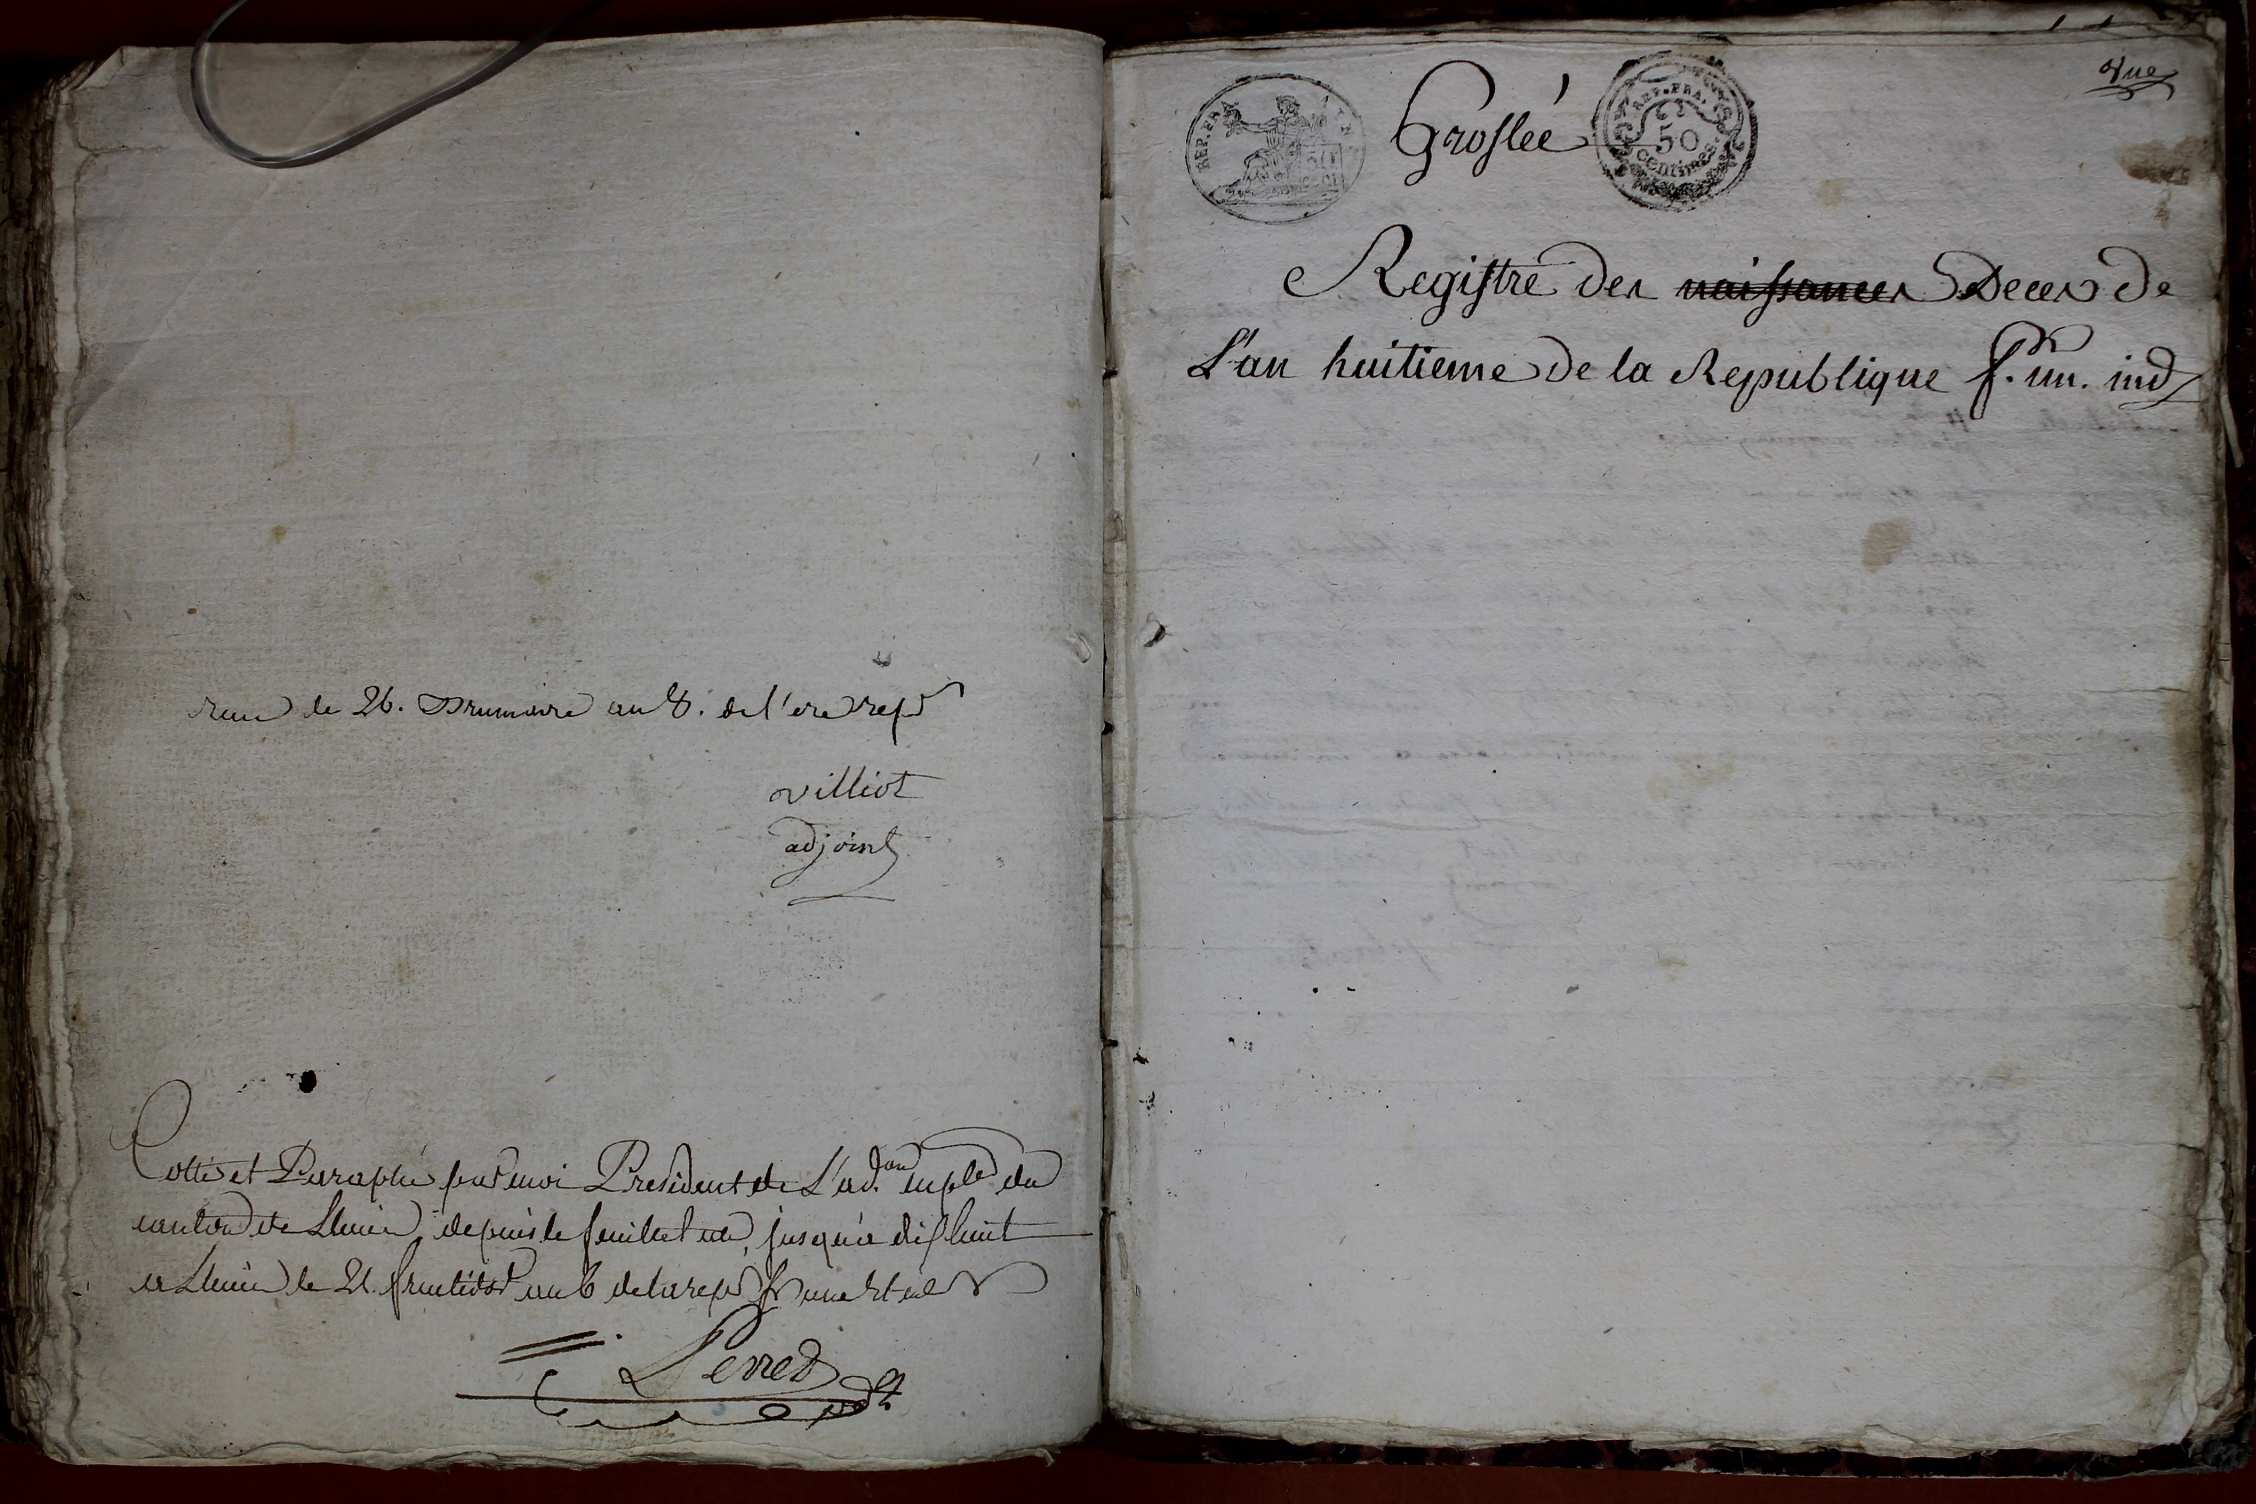 de 26. Brumaire an 8. de l'ere repne
villiot
adjoint
Cotté et Paraphé par moi President de L'ad.on mple du
canton de Lhuis, depuis le feuillet un, jusqu'a dix huit
a Lhuis le 21. fructidor an 6 de la rep. fr une et ind
Perret
pdt
une
REP. FRA.
Groslée
REP. FRA.
50
centimes
Registre des naissances Deces de
L'an huitieme de la Republique f. un. ind